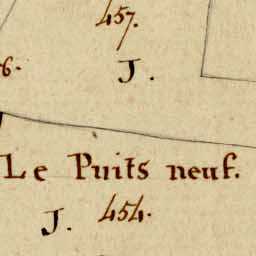 457.
J.
6.
Le Puits neuf.
J. 454.